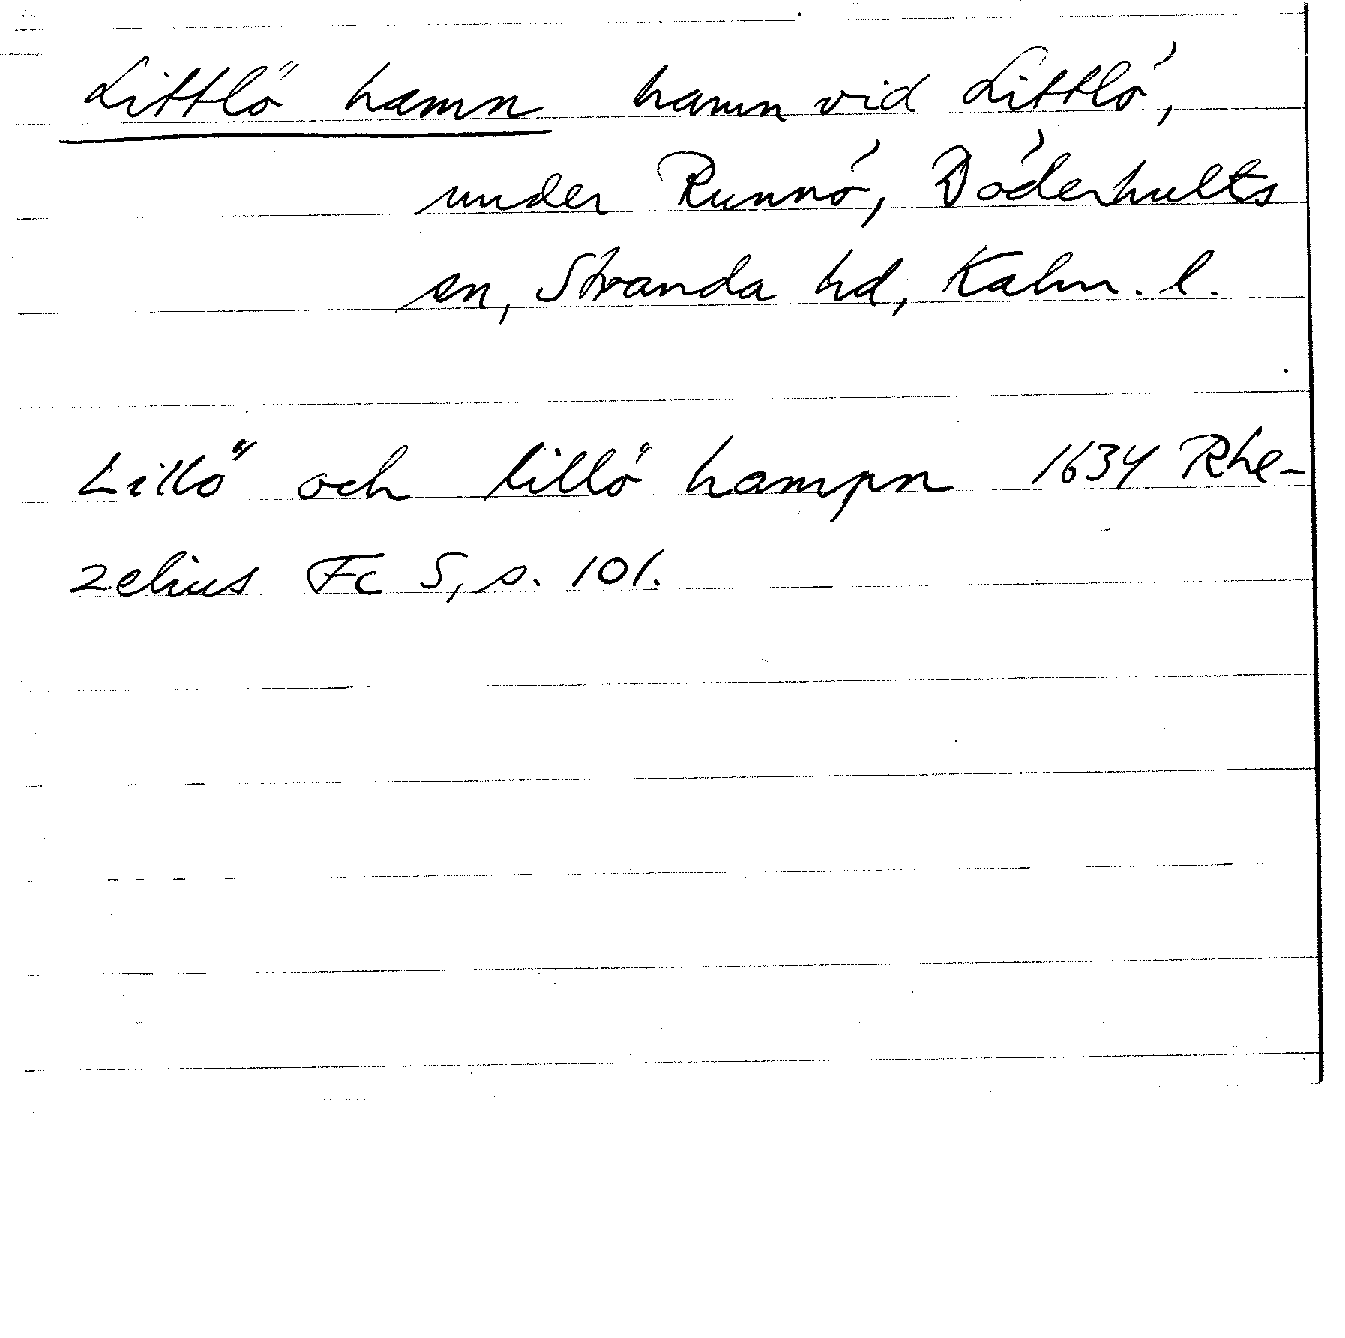 Littlö hamn hamn vid Littlö,
under Runnö, Döderhults
sn, Stranda hd, Kalm. l.
Lillö och lillö hampn 1634 Rhe-
zelius Fc 5, s. 101.